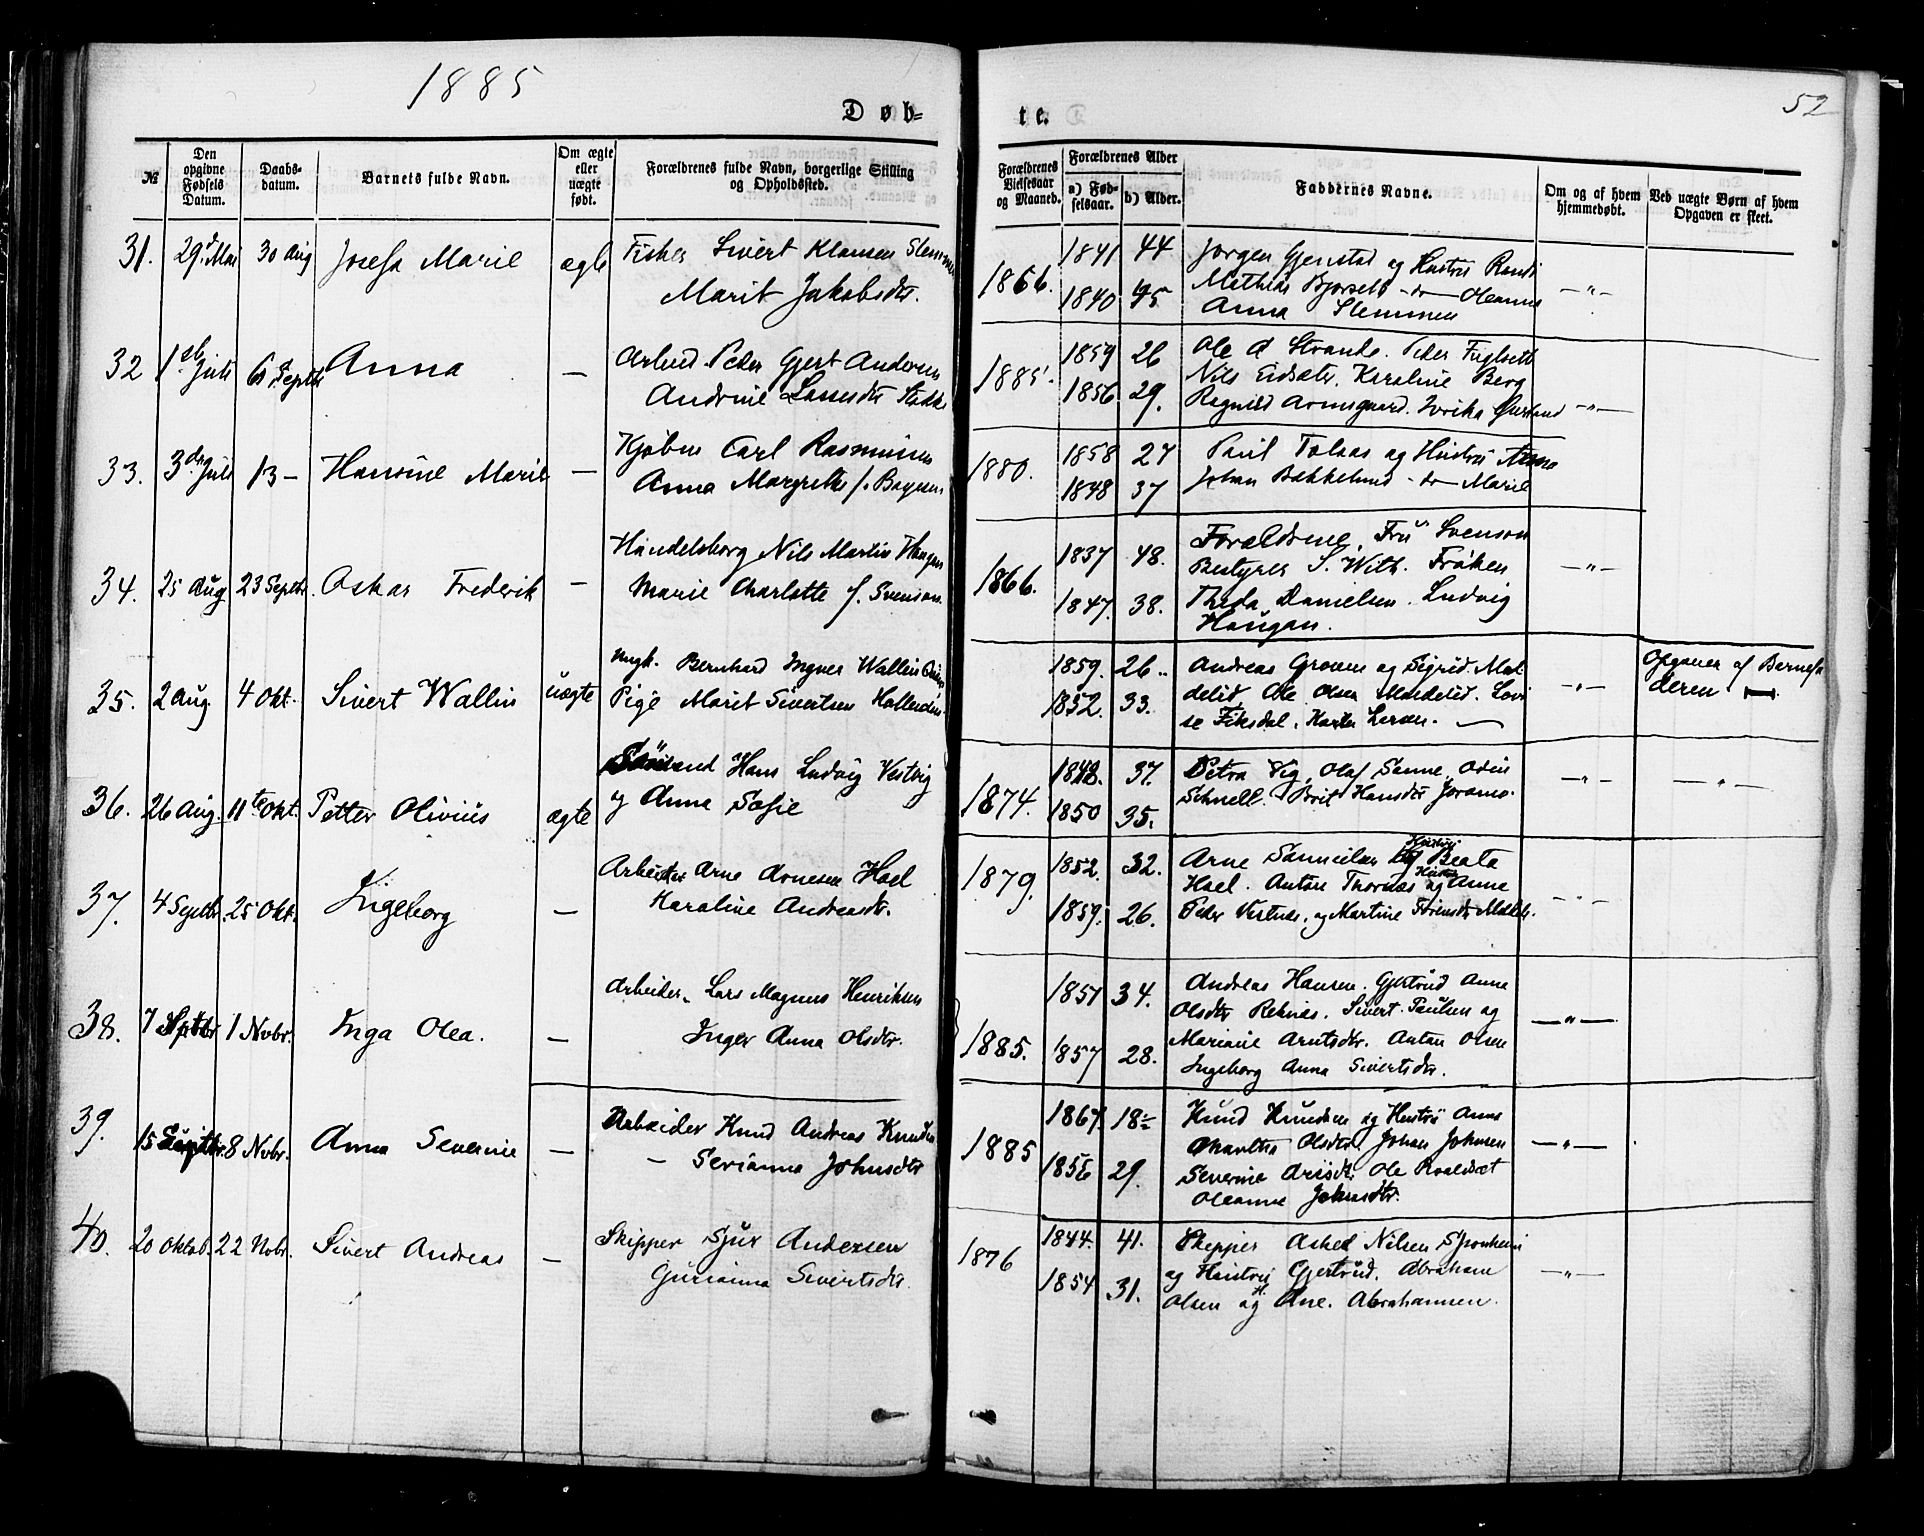 1885
52
Døb-
te.
№
Den opgivne Fødsels Datum.
Daabs-datum.
Barnets fulde Navn.
Om ægte eller uægte født.
Forældrenes fulde Navn, borgerlige Stilling og Opholdssted.
Forældrenes Vielsesaar og Maaned.
Forældrenes Alder
a) Fødselsaar.
b) Alder.
Faddernes Navne.
Om og af hvem hjemmedøbt.
Ved uægte Børn af hvem Opgaven er skeet.
31. 29. Mai 30 Aug Josefa Marie ægte Fisker Sivert Klausen
Marit Jakobsdtr.
1866. 1841 44 Jørgen Gjenstad og Hustru Randi
1840 45 Mathias Bjørseth -do- Oleanna
Anna Slemmen — " —
32 1ste Juli 6 Septbr Anna — Arbeid. Peder Gjert Andersen
Andrine Larsdtr
1885. 1859 26 Ole A Strande. Peder Fuglseth
1856 29. Nils Eidsæter. Karoline Berg
Ragnild — " —
33. 3die Juli 13 — Hansine Marie — Carl Rasmussen
Anna Margrete f.
1880. 1858 27 Paul Tolaas og Hustru Anna
1848 37 Johan Bakkelund -do- Marie
34. 25 Aug 23 Septbr. Oskar Frederik — Handelsborg Nils Martin Haugan
Marie Charlotte f. Svenson
1866. 1837 48. Forældrene, Fru Svenson
Bestyrer S. With. Frøken
1847. 38. Theda Danielsen. Ludvig
Haugan. — " —
35. 2 Aug. 4 Okt. Sivert Wallin uægte Ungk. Bernhard Ingver Wallin
Pige Marit Sivertsen
1859. 26 Andreas Groven og Sigrid Mol
1852. 33. delid Ole Olsen Moldelid. Lovi
se Fiksdal. Larsen. — " — Opgaven af Barnefa
deren
36. 26 Aug. 11te Okt. Petter Olivius ægte Hans Ludvig Vestvig
og Anna Sofie
1874. 1848. 37. Petra Vig, Olaf Sanne, Odin
1850 35. Schnell. Brit Hansdtr — " — — " —
37. 4 Septbr. 25 Okt. Ingeborg — Arbeider Arne Arnesen Hoel
Karoline Andreasdtr.
1879. 1852. 32. Arne Samuelsen og Hustru Beata
Hoel. Anton Thornes og Hustru Anne
1859. 26. Peder Vestnes, og Martine — " —
38. 7 Septbr 1 Novbr. Inga Olea. — Arbeider. Lars Magnus Henriksen
Inger Anna Olsdtr.
1885. 1857 34. Andreas Hansen. Gjertrud Anne
Olsdtr Reknes. Sivert Paulsen og
1857 28. Mariane Arntsdtr. Anton Olsen
Ingeborg Anna Sivertsdtr. — " —
39. 15 Septbr. 8 Novbr. Anna Severine — Arbeider Knud Andreas Knudsen
— Serianna Johnsdtr
1885 1867. 18 Knud Knudsen og Hustru Anne
Olsdtr. Johan Johnsen
1856 29. Severine Ole Roaldset
Oleanne Johnsdtr. — " —
40. 20 Oktob. 22 Nobr. Sivert Andreas — Skipper Sjur Andersen
Gurianna Sivertsdtr.
1876 1844. 41. Skipper Askel Nilsen Sponheim
1854 31. og Hustru Gjertrud. Abraham
Olsen og H. Ane. Abrahamsen. — " —